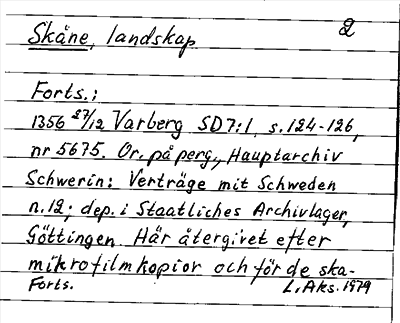 Skåne, landskap 2
Forts.:
1356 27/12 Varberg SD7:1, s.124-126,
nr 5675. Or. på perg., Hauptarchiv
Schwerin: Verträge mit Schweden
n.12; dep. i Staatliches Archivlager,
Göttingen. Här återgivet efter
mikrofilmkopior och för de ska-
Forts. L. Aks. 1979